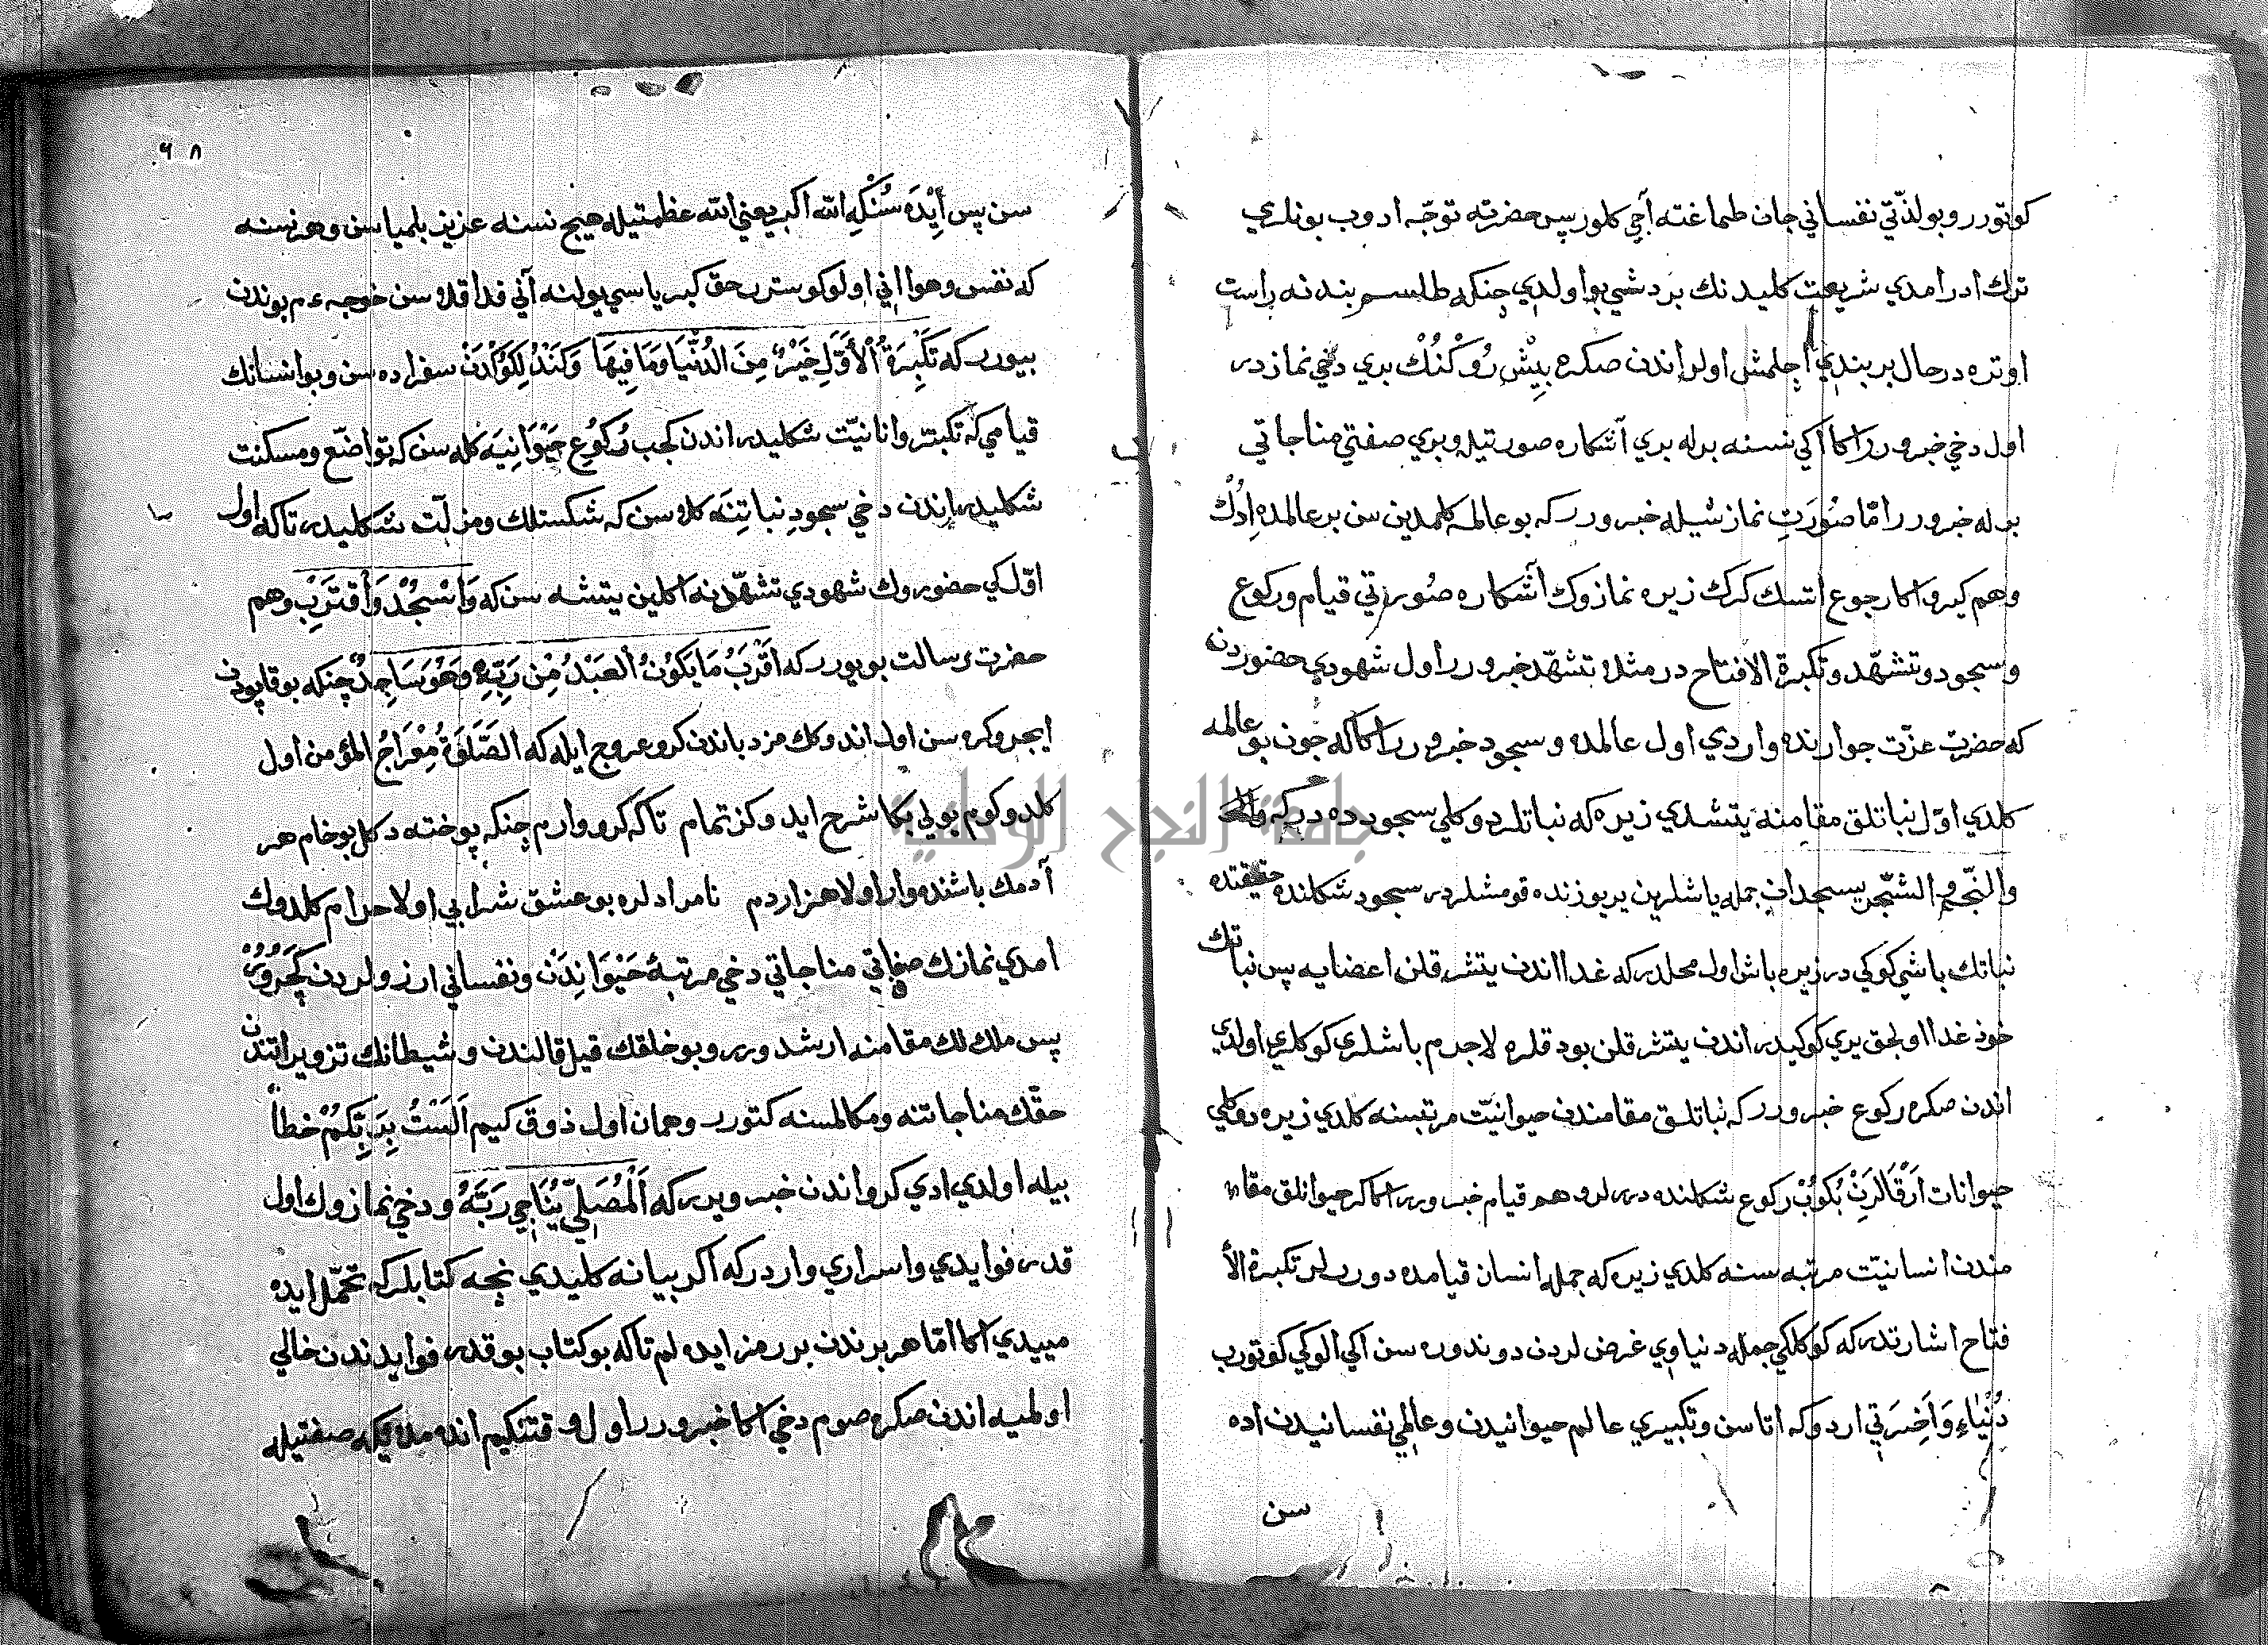 كوتورر وبو لذتي نفساني جان طماغنه آجي كلور پس حضرته توجّه ادوب بونلري
ترك ادر امدي شريعت كليدنك بر دشي بو اولدي چنكه طلسم بندنه راست
اوتره درحال بر بندي اچلمش اولر اندن صكره بِيْش رُوكْنُنْك بري دخي نمازدر
اول دخي خبر ورر اكا اكي نسنه برله بري آشكاره صورتيله وبري صفتي مناجاتي
برله خبر ورر امّا صُورَتِ نماز شيله خبر ورر كه بو عالمه كلمدين سن بر عالمده اِدُك
وهم كيرو اكا رجوع اتسك كرك زيره نمازوك آشكاره صُورتي قيام وركوع
وسجود وتشهّد وتكبرة الافتاح در مثلا تشهّد خبر ورر اول شهودي حضوردن
كه حضرت عزّت جوارنده واردي اول عالمده وسجود خبر ورر اكا كه چون بو عالمه
كلدي اوّل نباتلق مقامنه يتشدي زيره كه نباتلر دوكلي سجودده در كه
والنّجم والشّجر يسجدان جمله ياشلرين ير يوزنده قومشلردر سجود شكلنده حقيقتده
نباتك باشي كوكي در زيره باش اول محلدر كه غدا اندن يتشر قلن اعضايه پس نباتك
خود غدا اولجق يري كوكيدر اندن يتشر قلن بودقلره لاجرم باشلري كوكلري اولدي
اندن صكره ركوع خبر ورر كه نباتلق مقامندن حيوانيّت مرتبسنه كلدي زيره دوكلي
حيوانات اَرْقَالَرِنْ بُكوُبْ ركوع شكلنده درلر وهم قيام خبر ورر اكا كه حيوانلق مقا
مندن انسانيّت مرتبه سنه كلدي زيره كه جمله انسان قيامده دورلر تكبرة الا
فتاح اشارتدر كه كوكلكي جمله دنياوي غرضلردن دوندوره سن اكي الوكي كوتورب
دُنْيَاءِ وَاَخِرَتي اردوكه اتاسن وتكبيري عالم حيوانيدن وعالمي نفسانيدن اده
سن
٦٨
سن پس اَيْدَه سُنْكِه الله اكبر يعني الله عظمتيله هيچ نسنه عزيز بلميا سن وهر نسنه
كه نفس وهوا اني اولو كوسترر حق كبرياسي يولنه آني فدا قله سن خوجه ءم بوندن
بيورر كه تَكْبِرَةُ الْأَوَّلِ خَيْرٌ مِنَ الدُّنْيَا وَمَا فِيهَا وَكَنْدُلِكوُكْدَنْ سفر اده سن وبو انسانك
قيامي كه تكبتر وانانيّت شكليدر اندن كجب رُكوُعِ حَيْوَانِيَه كله سن كه تواضّع ومسكنت
شكليدر اندن دخي سجودِ نباتِيَه كله سن كه شكستلك ومزلّت شكليدر تا كه اول
اوّل كي حضوروك شهودي تشهّدنه اكلين يتشه سن كه وَاسْجُدْ وَاقْتَرِبْ وهم
حضرت رسالت بويورر كه اَقْرَبُ مَا يَكوُنُ الْعَبْدُ مِنْ رَبِّهِ وَهُوَ سَاجِدٌ چنكه بو قاپودن
ايجرو كره سن اول اندوكك مزدباندن كرو عروج ايله كه الصَّلَوةُ مِعْرَاجُ المؤمن اول
كلدوكوم يولي بكا شرح ايد وكز تمام تا كه كرو وارم چنكه پوخته دكل بو خام هر
آدمك باشنده وار اولا هزار دم نامرادلره بو عشق شرابي اولا حرام كلدوك
امدي نمازك صفاتي مناجاتي دخي مرتبهٔ حَيْوَانِدَنْ ونفساني ارزولردن
پس ملك لك مقامنه ارشدورر وبو خلقك قيل قالندن وشيطانك تزويراتندن
حقّك مناجاتنه ومكالمسنه كتورر وهمان اول ذوق كيم اَلَسْتُ بِرَبِّكُمْ خطاً
بيله اولدي ادي كرو اندن خبر ويرر كه اَلْمُصَلِّي يُنَاجِي رَبَّهُ ودخي نمازوك اول
قدر فوايدي واسراري واردر كه اكر بيانه كليدي نجه كتابلر كه تحمّل ايده
مييدي اكا امّا هر برندن بر رمز ايده لم تا كه بو كتاب بو قدر فوايدندن خالي
اولميه اندن صكره صوم دخي اكا خبر ورر اول وقتنكيم انده ملايكه صفتيله